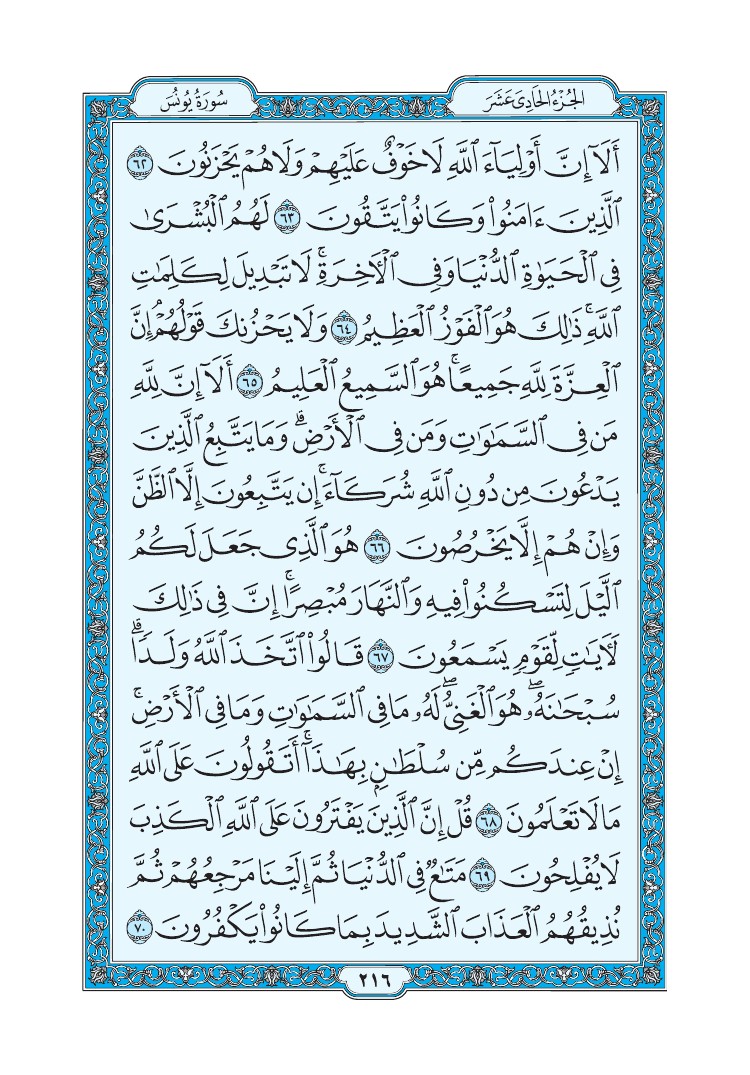 الجُزْءُ الحَادِيَ عَشَرَ
سُورَةُ يُونُسَ
أَلَآ إِنَّ أَوْلِيَآءَ ٱللَّهِ لَا خَوْفٌ عَلَيْهِمْ وَلَا هُمْ يَحْزَنُونَ ٦٢
ٱلَّذِينَ ءَامَنُوا۟ وَكَانُوا۟ يَتَّقُونَ ٦٣ لَهُمُ ٱلْبُشْرَىٰ
فِى ٱلْحَيَوٰةِ ٱلدُّنْيَا وَفِى ٱلْءَاخِرَةِ ۚ لَا تَبْدِيلَ لِكَلِمَٰتِ
ٱللَّهِ ۚ ذَٰلِكَ هُوَ ٱلْفَوْزُ ٱلْعَظِيمُ ٦٤ وَلَا يَحْزُنكَ قَوْلُهُمْ ۘ إِنَّ
ٱلْعِزَّةَ لِلَّهِ جَمِيعًا ۚ هُوَ ٱلسَّمِيعُ ٱلْعَلِيمُ ٦٥ أَلَآ إِنَّ لِلَّهِ
مَن فِى ٱلسَّمَٰوَٰتِ وَمَن فِى ٱلْأَرْضِ ۗ وَمَا يَتَّبِعُ ٱلَّذِينَ
يَدْعُونَ مِن دُونِ ٱللَّهِ شُرَكَآءَ ۚ إِن يَتَّبِعُونَ إِلَّا ٱلظَّنَّ
وَإِنْ هُمْ إِلَّا يَخْرُصُونَ ٦٦ هُوَ ٱلَّذِى جَعَلَ لَكُمُ
ٱلَّيْلَ لِتَسْكُنُوا۟ فِيهِ وَٱلنَّهَارَ مُبْصِرًا ۚ إِنَّ فِى ذَٰلِكَ
لَءَايَٰتٍ لِّقَوْمٍ يَسْمَعُونَ ٦٧ قَالُوا۟ ٱتَّخَذَ ٱللَّهُ وَلَدًا ۗ
سُبْحَٰنَهُۥ ۖ هُوَ ٱلْغَنِىُّ ۖ لَهُۥ مَا فِى ٱلسَّمَٰوَٰتِ وَمَا فِى ٱلْأَرْضِ ۚ
إِنْ عِندَكُم مِّن سُلْطَٰنٍۭ بِهَٰذَآ ۚ أَتَقُولُونَ عَلَى ٱللَّهِ
مَا لَا تَعْلَمُونَ ٦٨ قُلْ إِنَّ ٱلَّذِينَ يَفْتَرُونَ عَلَى ٱللَّهِ ٱلْكَذِبَ
لَا يُفْلِحُونَ ٦٩ مَتَٰعٌ فِى ٱلدُّنْيَا ثُمَّ إِلَيْنَا مَرْجِعُهُمْ ثُمَّ
نُذِيقُهُمُ ٱلْعَذَابَ ٱلشَّدِيدَ بِمَا كَانُوا۟ يَكْفُرُونَ ٧٠
٢١٦